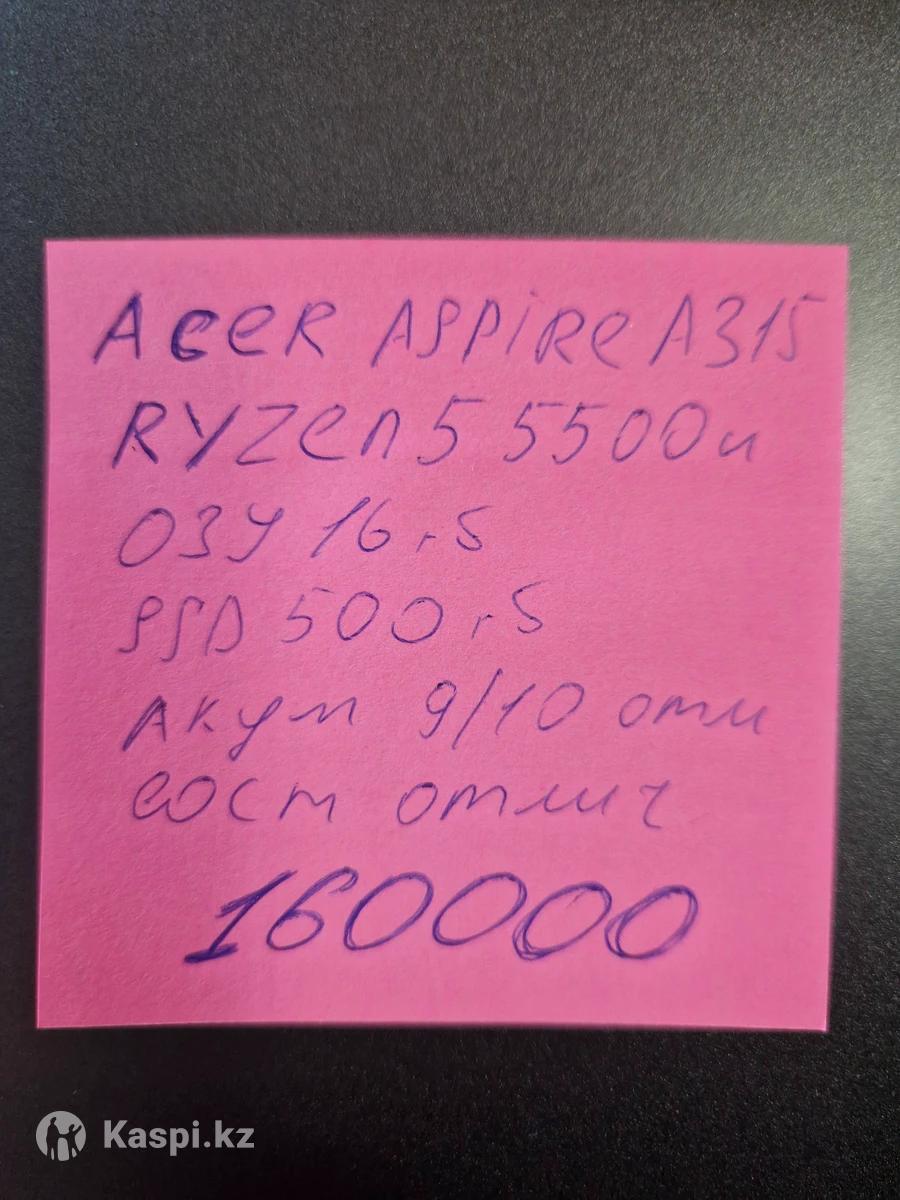 Acer Aspire A315
Ryzen 5 5500u
ОЗУ 16 гб
SSD 500 гб
Акум 9/10 отл
сост отлич
160000
Kaspi.kz